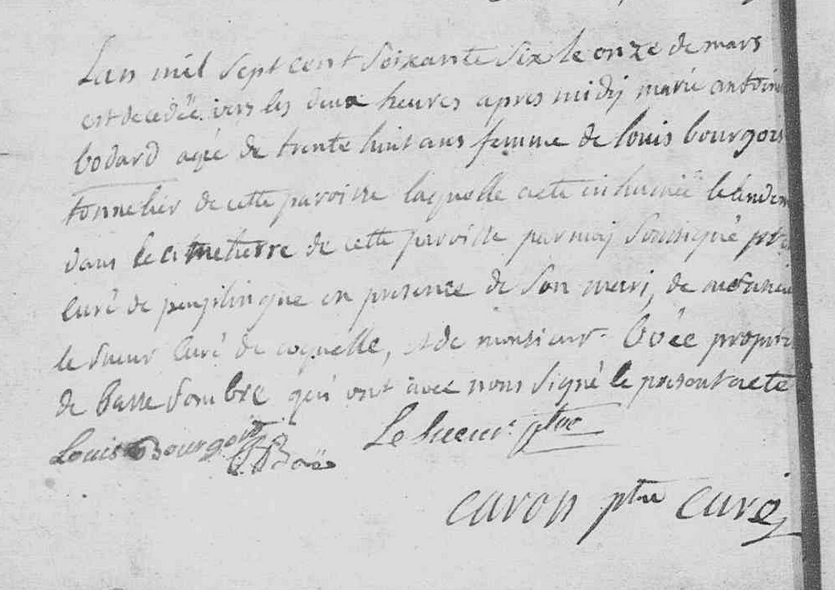 Lan mil sept cent soixante six le onze de mars
est decedëe vers les deux heures apres midij marie antoin
bodard agée de trente huit ans femme de louis bourgois
tonnelier de cette paroisse laquelle a ete inhumëe le lendem
dans le cimetierre de cette paroisse par moij soussigné ptr
curé de peuplingue en presence de son mari, de
le sueur curé de coquelle, et de monsieur Boëe propri
de basse sombre qui ont avec nous signé le present acte
Louis Bourgois Boëe Le sueur ptre
caron ptre curé